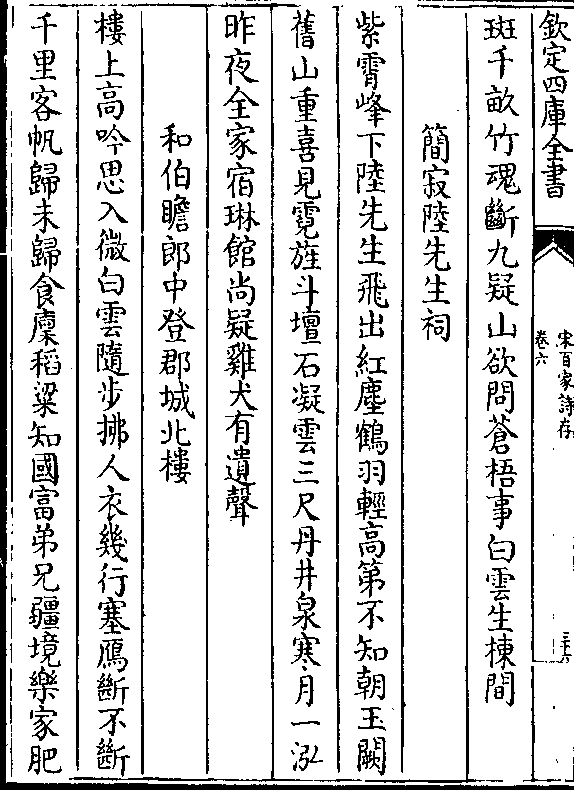 欽定四庫全書
宋百家詩存
卷六
三十六
斑千畝竹魂斷九疑山欲問蒼梧事白雲生棟間
簡寂陸先生祠
紫霄峰下陸先生飛出紅塵鶴羽輕高第不知朝玉闕
舊山重喜見霓旌斗壇石凝雲三尺丹井泉寒月一泓
昨夜全家宿琳館尚疑雞犬有遺聲
和伯瞻郎中登郡城北樓
樓上高吟思入微白雲隨步拂人衣幾行塞鴈斷不斷
千里客帆歸未歸食廩稻粱知國富弟兄疆境樂家肥